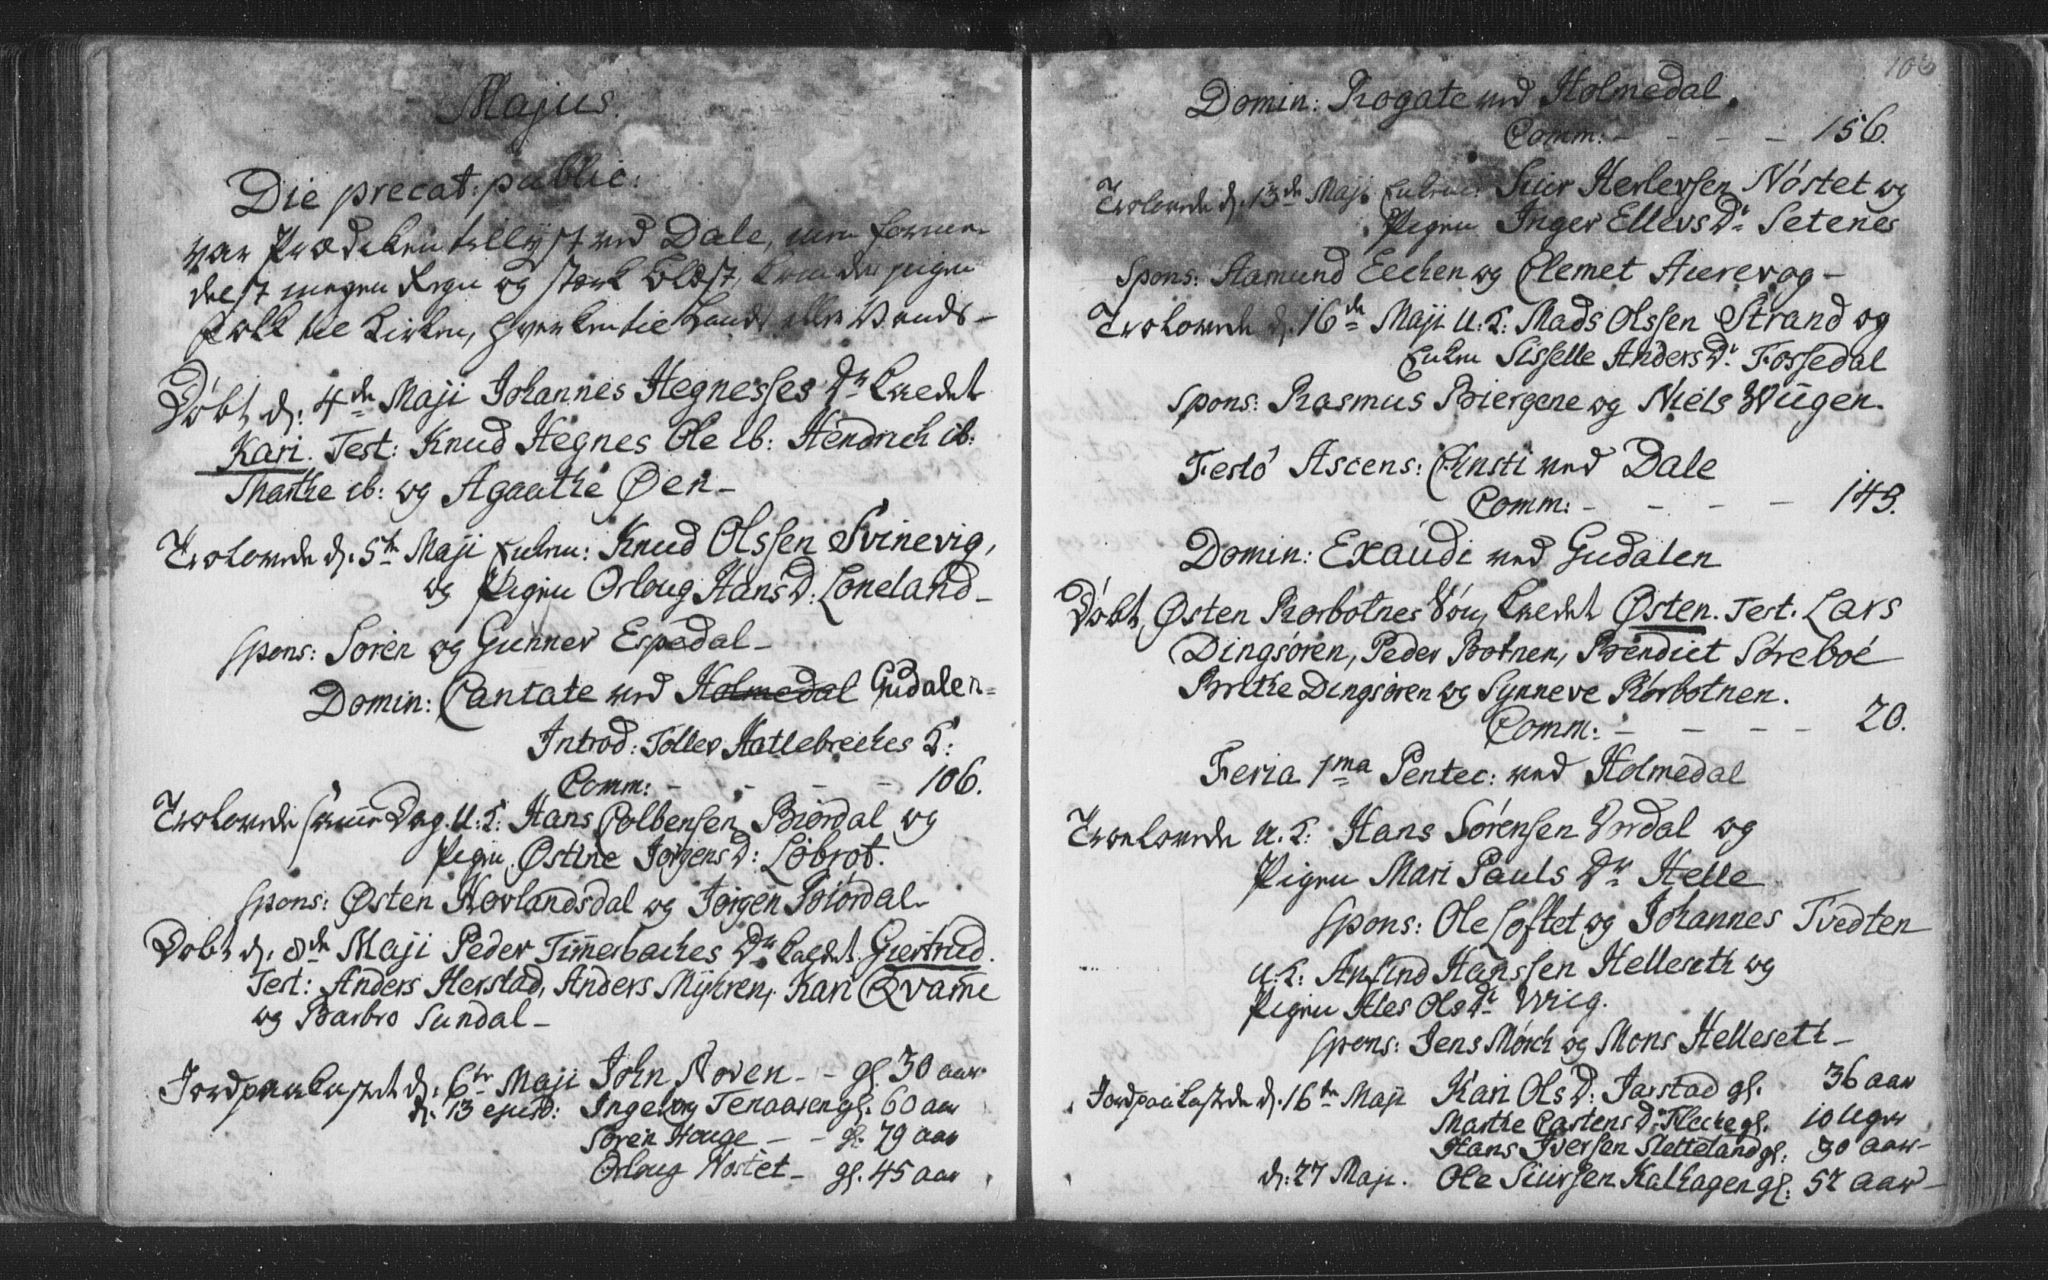 Majus.
Die precat: public:
var Prædiken tillyst ved Dale, men formedelst megen Regn og stærk blæst, kom der ingen
Folk til Kirken, hverken til Lands eller Vands-
Døbt d: 4de Maji Johannes Hegnesses Dr kaldet
Kari. Test: Knud Hegnes Ole ib: Hendrich ib:
Marthe ib: og Agaathe Øen-
Trolovede d. 5te Maji Enkem: Knud Olssen Svinevig,
og Pigen Orloug Hans D: Loneland-
Spons: Soren og Gunner Espedal-
Domin: Cantate ved Holmedal Gudalen-
Introd: Toller Hatlebreckes K:
Comm: - - - - 106.
Trolovede samme Dag. U: K: Hans Colbensen Biordal og
Pigen Østine Jørgens D: Løbrot.
Spons: Østen Hovlandsdal og Jørgen Biørdal-
Døbt d. 8de Maji Peder Timmerbackes Dr kaldet Giertrud.
Test: Anders Herstad, Anders Myhren, Kari Qvame
og Barbro Sundal-
Jordpaakastet d: 6te Maji John Noven - - gl. 30 aar
d: 13 ejusd: Ingeborg Tenaaren gl. 60 aar
Soren Houge - - gl: 79 aar
Orloug Nøstet - gl. 45 aar
106
Domin: Rogate ved Holmedal.
Comm: - - - - 156.
Trolovede d. 13de Maji Enkem: Siur Herlevsen Nøstet og
Pigen Inger Ellevs Dr Setenes
Spons: Aamund Eechen og Clemet Aurevog-
Trolovede d. 16de Maji U: K: Mads Olssen Strand og
Enken Sisselle Anders Dr Fossedal
Spons: Rasmus Biergene og Niels Wügen.
Festo Ascens: Christi ved Dale
Comm: - - - - 143.
Domin: Exaudi ved Gudalen
Døbt Østen Rørbotnes Søn, kaldet Østen. Test. Lars
Dingsøren, Peder Botnen, Bendict Søreboe
Brithe Dingsøren og Synneve Rørbotnen.
Comm: - - - - 20.
Feria 1ma Pentec: ved Holmedal
Troelovede U. K: Hans Sørensen Vordal og
Pigen Mari Pauls Dr Helle
Spons: Ole Loftet og Johannes Tvedten
U: K: Anfind Hanssen Helleseth og
Pigen Ales Ols Dr Wiig.
Spons: Jens Mørch og Mons Hellesett-
Jordpaakastede d. 16te Maji Kari Ols D: Jarstad gl. 36 aar
Marthe Carstens Dr Flecke gl. 10 Uger
Hans Iversen Sletteland gl: 30 aar-
d: 27 Maji. Ole Siursen Kalhagen gl: 52 aar-